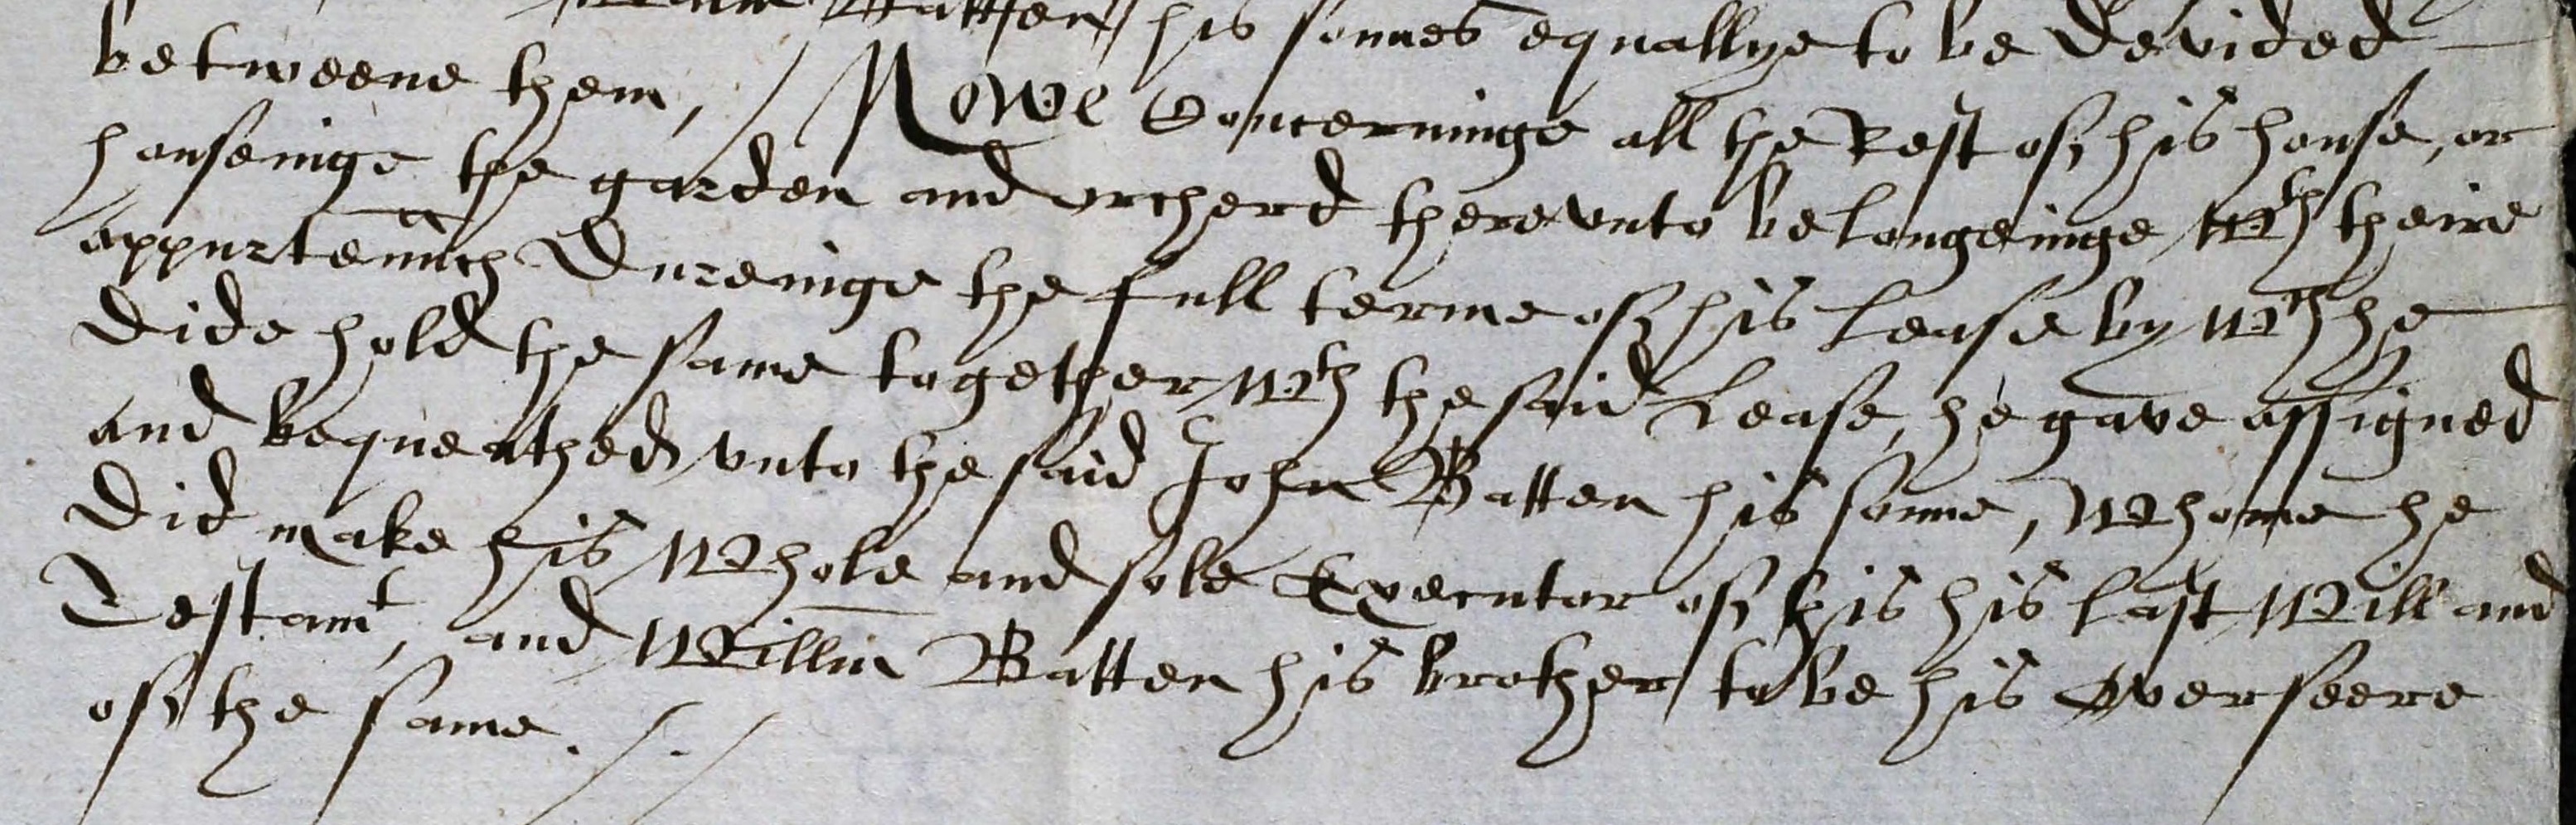 Batten his sonnes equallye to be devided
betweene them, / Nowe Concerninge all the Rest of his house, or
houseinge the garden and orcherd therevnto belongeinge wth theire
appurtennc Dureinge the full terme of his lease by wch he
dide hold the same together wth the said Lease, he gave assigned
and bequeathed vnto the said John Batten his sonne, whome he
did make his whole and sole Executor of this his last will and
Testamt, and Willm Batten his brother to be his overseere
of the same. /./